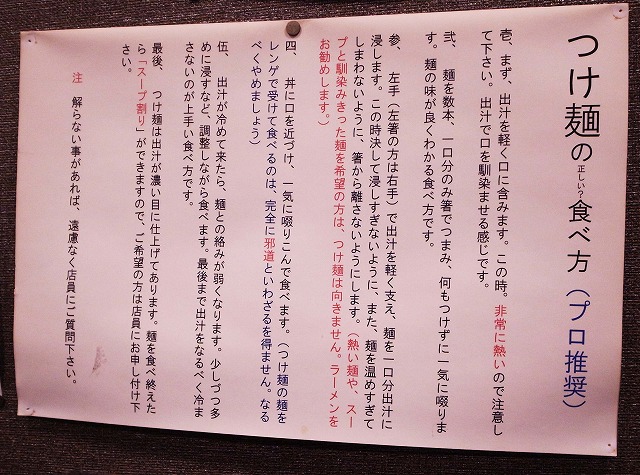 つけ麺の正しい?食べ方(プロ推奨)
壱、まず、出汁を軽く口に含みます。この時。非常に熱いので注意し
て下さい。出汁で口を馴染ませる感じです。
弐、麺を数本、一口分のみ箸でつまみ、何もつけずに一気に啜りま
す。麺の味が良くわかる食べ方です。
参、左手(左箸の方は右手)で出汁を軽く支え、麺を一口分出汁に
浸します。この時決して浸しすぎないように、また、麺を温めすぎて
しまわないように、箸から離さないようにします。(熱い麺や、スー
プと馴染みきった麺を希望の方は、つけ麺は向きません。ラーメンを
お勧めします。)
四、丼に口を近づけ、一気に啜りこんで食べます。(つけ麺の麺を
レンゲで受けて食べるのは、完全に邪道といわざるを得ません。なる
べくやめましょう)
伍、出汁が冷めて来たら、麺との絡みが弱くなります。少しづつ多
めに浸すなど、調整しながら食べます。最後まで出汁をなるべく冷ま
さないのが上手い食べ方です。
最後、つけ麺は出汁が濃い目に仕上げてあります。麺を食べ終えた
ら「スープ割り」ができますので、ご希望の方は店員にお申し付け下
さい。
注 解らない事があれば、遠慮なく店員にご質問下さい。